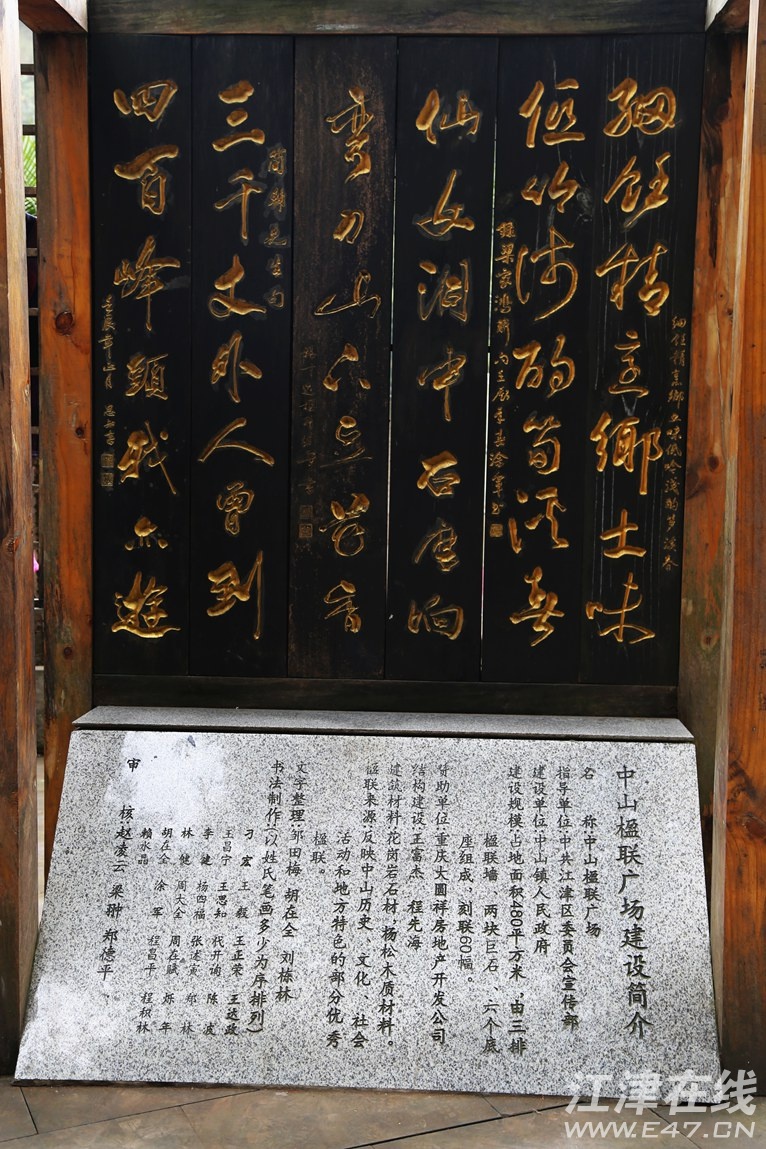 细饪精烹乡土味
细饪精烹乡土味低吟浅酌笋溪春
低吟浅酌笋溪春
仙女洞中石磨响
弯刀山下豆花香
三千丈外人曾到
四百峰头我亦游
壬辰年
中山楹联广场建设简介
名　　称:中山楹联广场
指导单位:中共江津区委员会宣传部
建设单位:中山镇人民政府
建设规模:占地面积480平方米,由三排
楹联墙、两块巨石、六个底
座组成,刻联60幅。
资助单位:重庆大圆祥房地产开发公司
结构建设:王富杰　程先海
建筑材料:花岗岩石材,杨松木质材料。
楹联来源:反映中山历史、文化、社会
活动和地方特色的部分优秀
楹联。
文字整理:邹田梅 胡在全 刘栋林
书法制作:(以姓氏笔画多少为序排列)
刁　宏　王　毅　王正荣　王远政
王昌宁　王思知　代开询　陈　波
李　健　杨四福　张述寅　郑　林
林　健　周大全　周在赋　烁　年
胡在全　涂　军　程昌平　程积林
赖永品
审　核:赵凌云 梁翀 郑德平
江津在线
WWW.E47.CN